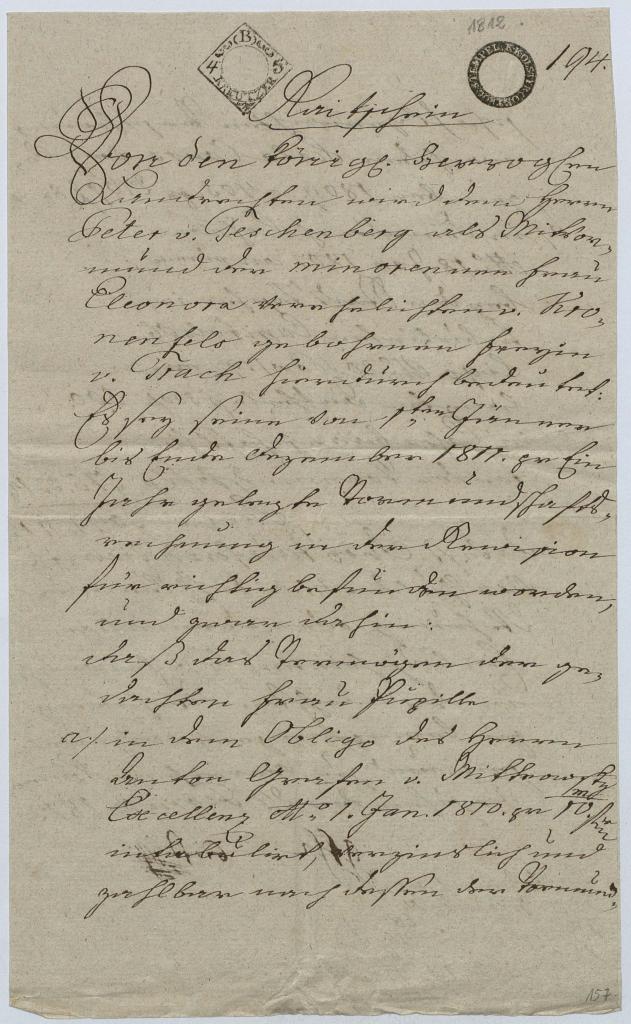 1812.
194.
4 (B) 5
KREUTZER
Raitschein
Von den königl. Herzoglen
Landrechten wird dem Herrn
Peter v. Teschenberg als Mitvor-
mund der minorennen Frau
Eleonora verehelichten v. Kro-
nenfels gebohrnen Freyin
v. Trach hierdurch bedeutet:
Es sey seine von 1ten Jänner
bis Ende Dezember 1811. pr Ein
Jahr gelegte Vormundschafts-
rechnung in der Revision
für richtig befunden worden,
und zwar dahin:
daß das Vermögen der ge-
dachten Frau Pupille
a/. in dem Obligo des Herrn
Anton Grafen v. Mittrowsky
Excellenz 1. Jan. 1810. pr
intabulirt, verzinslich und
zahlbar nach dessen der Vormund-
157